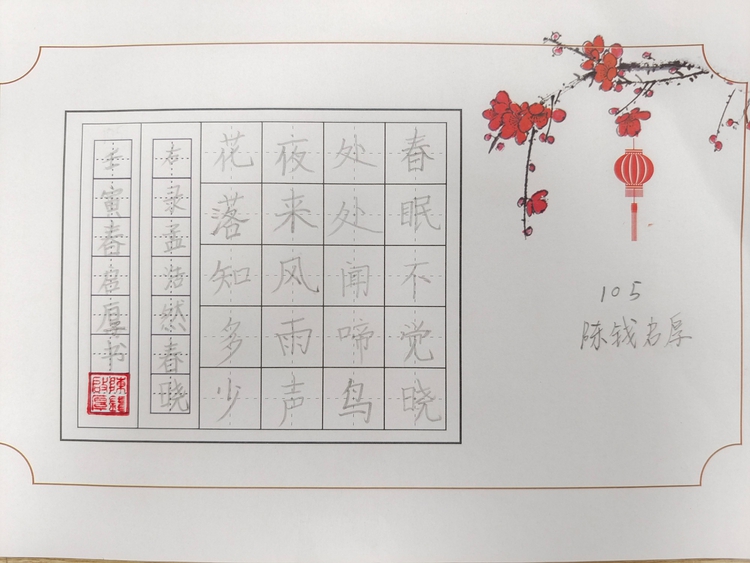 春眠不觉晓
处处闻啼鸟
夜来风雨声
花落知多少
右录孟浩然春晓
壬寅春启厚书
105
陈钱启厚